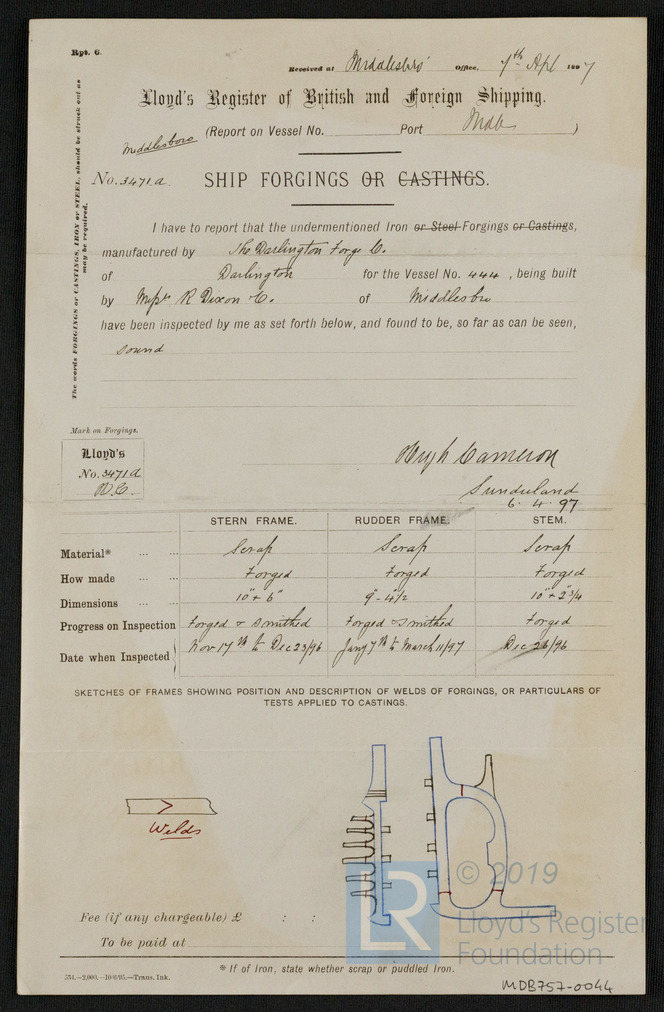 Rpt. 6.
Received at Middlesbro' Office, 7th Apl 1897
Lloyd's Register of British and Foreign Shipping.
Middlesboro (Report on Vessel No. Port Mdb )
No. 3471a SHIP FORGINGS OR CASTINGS.
The words FORGINGS or CASTINGS, IRON or STEEL, should be struck out as
may be required.
I have to report that the undermentioned Iron or Steel Forgings or Castings,
manufactured by The Darlington Forge Co.
of Darlington for the Vessel No. 444 , being built
by Messrs R Dixon & Co. of Middlesbro
have been inspected by me as set forth below, and found to be, so far as can be seen,
sound
Mark on Forgings.
Lloyd's
No. 3471a
H.C.
Hugh Cameron
Sunderland
6.4.97
STERN FRAME. RUDDER FRAME. STEM.
Material* ... ... Scrap Scrap Scrap
How made ... ... Forged Forged Forged
Dimensions ... ... 10" x 6" 9" - 4 1/2 10" x 2 3/4
Progress on Inspection Forged & Smithed Forged & Smithed Forged
Date when Inspected Nov 17th to Dec 23/96 Jany 7th to March 11/97 Dec 23/96
SKETCHES OF FRAMES SHOWING POSITION AND DESCRIPTION OF WELDS OF FORGINGS, OR PARTICULARS OF
TESTS APPLIED TO CASTINGS.
Welds
Fee (if any chargeable) £ : :
To be paid at
* If of Iron, state whether scrap or puddled Iron.
551.—2,000.—10/6/95.—Trans. Ink.
MDB757-0044
LR
© 2019
Lloyd's Register
Foundation